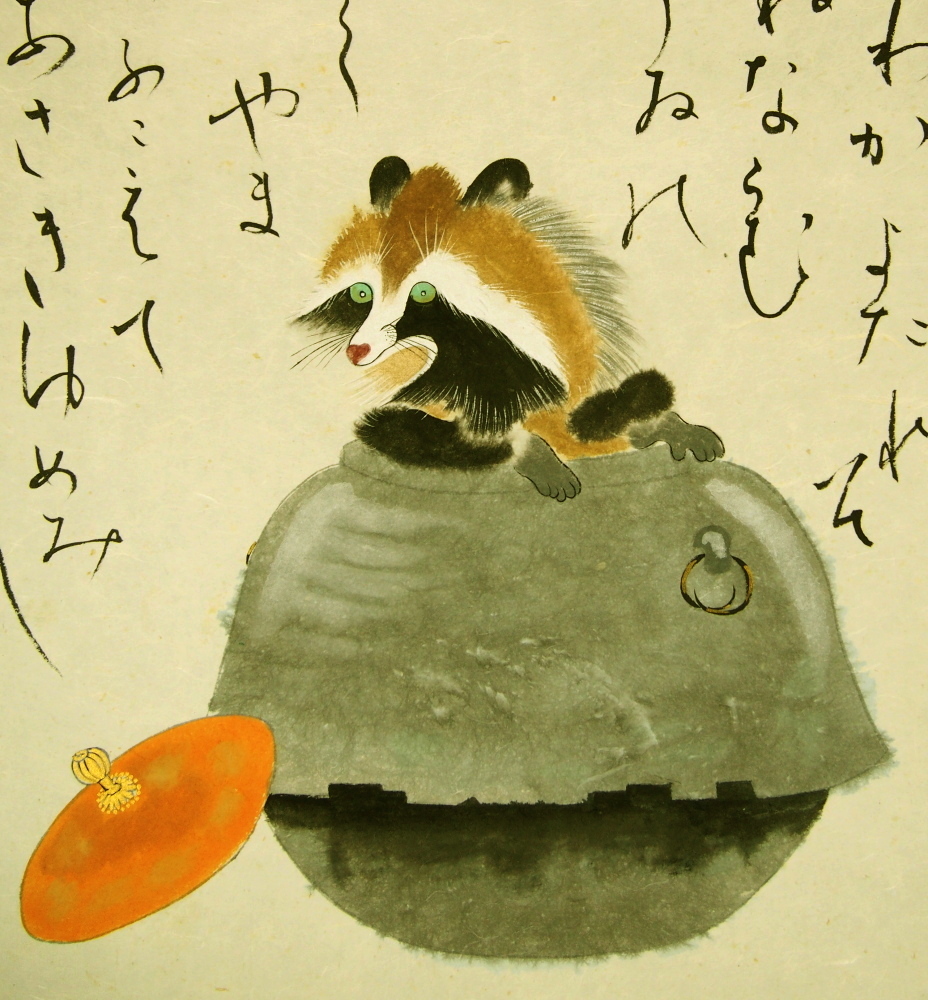 わかよたれそ
ねならむ
ゐの
くやま
ふこえて
あさきゆめみ
し